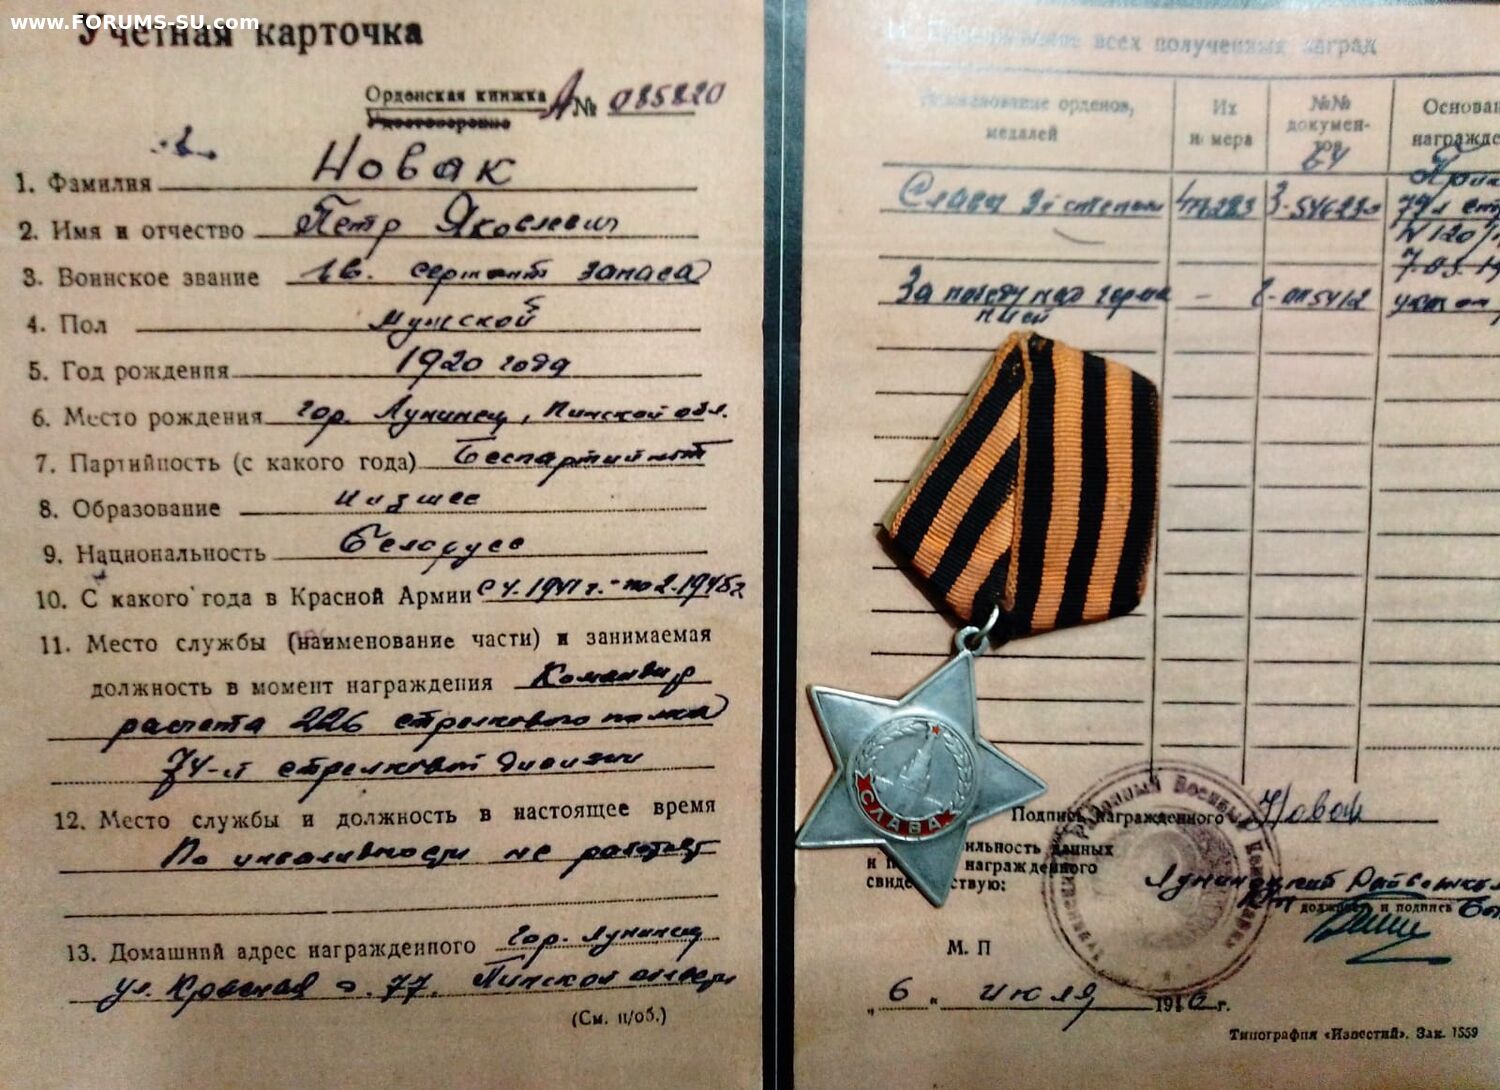 www.FORUMS-SU.com
Учетная карточка
Орденская книжка А № 085820
Удостоверение
1. Фамилия Новак
2. Имя и отчество Петр Яковлевич
3. Воинское звание гв. сержант запаса
4. Пол мужской
5. Год рождения 1920 года
6. Место рождения гор. Лунинец, Пинской обл.
7. Партийность (с какого года) беспартийный
8. Образование низшее
9. Национальность белорусс
10. С какого года в Красной Армии
11. Место службы (наименование части) и занимаемая
должность в момент награждения Командир
расчета 226 стрелкового полка
74-й стрелковой дивизии
12. Место службы и должность в настоящее время
По инвалидности не работает
13. Домашний адрес награжденного гор. Лунинец
ул. Красная д. 77. Пинской области
(См. н/об.)
всех полученных наград
орденов,
медалей
Их
номера
№№
докумен-
тов
Основан
награжде
Слава 3й степени
За победу над герма
нией
СЛАВА
Подпись награжденного Новак
данных
и награжденного
Лунинецкий
должность и подпись
М. П
„ 6 “ июля 1946 г.
Типография «Известий». Зак. 1559